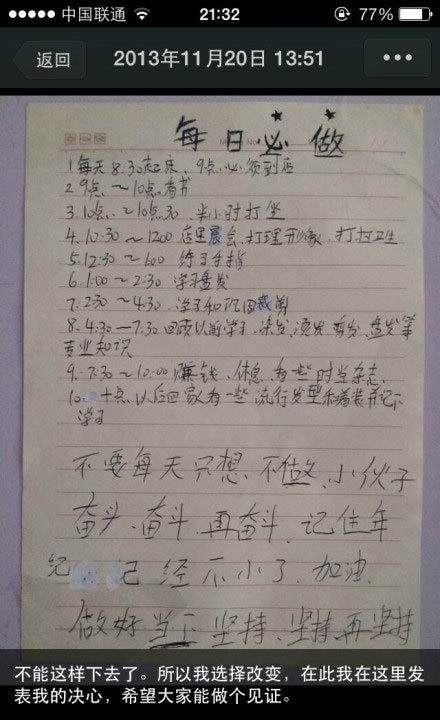 中国联通 21:32 77%
返回 2013年11月20日 13:51 •••
每日必做
1 每天8.30起床、9点必须到店
2 9点、~10点看书
3.10点、~10点30 半小时打坐
4.10:30~1200 店里晨会、打理形象、打扫卫生
5.12:30~100 练习手指
6.1:00~2:30 学习盘发
7.2:30~4:30、学习和巩固裁剪
8.4:30—7.30回顾以前学习、染发、烫发、剪发、盘发等
专业知识
9.7:30~10:00赚钱、休息、有一些时尚杂志、
10.十点、以后回家有一些流行发型和着装 记下
学习
不要每天只想、不做、小伙子
奋斗、奋斗、再奋斗、记住年
纪 已经不小了、加油、
做好当下 坚持、坚持、再坚持
不能这样下去了。所以我选择改变，在此我在这里发
表我的决心，希望大家能做个见证。